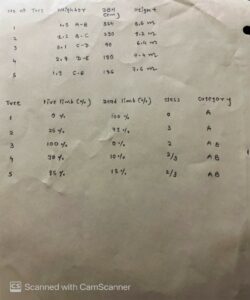 No of Tree Neighbor DBH (cm) Height
1 1.3 A-B 324 8.6 m
2 2.2 B-C 230 9.2 m
3 0.1 C-D 90 6.4 m
4 2.7 D-E 180 9.4 m
5 1.3 C-E 196 7.6 m
Tree Live limb (%) Dead limb (%) Class Category
1 0 % 100 % 0 A
2 25 % 3 A
3 100 % 0 % 2 AB
4 90 % 10 % 2/3 AB
5 85 % 15 % 2/3 AB
CS Scanned with CamScanner